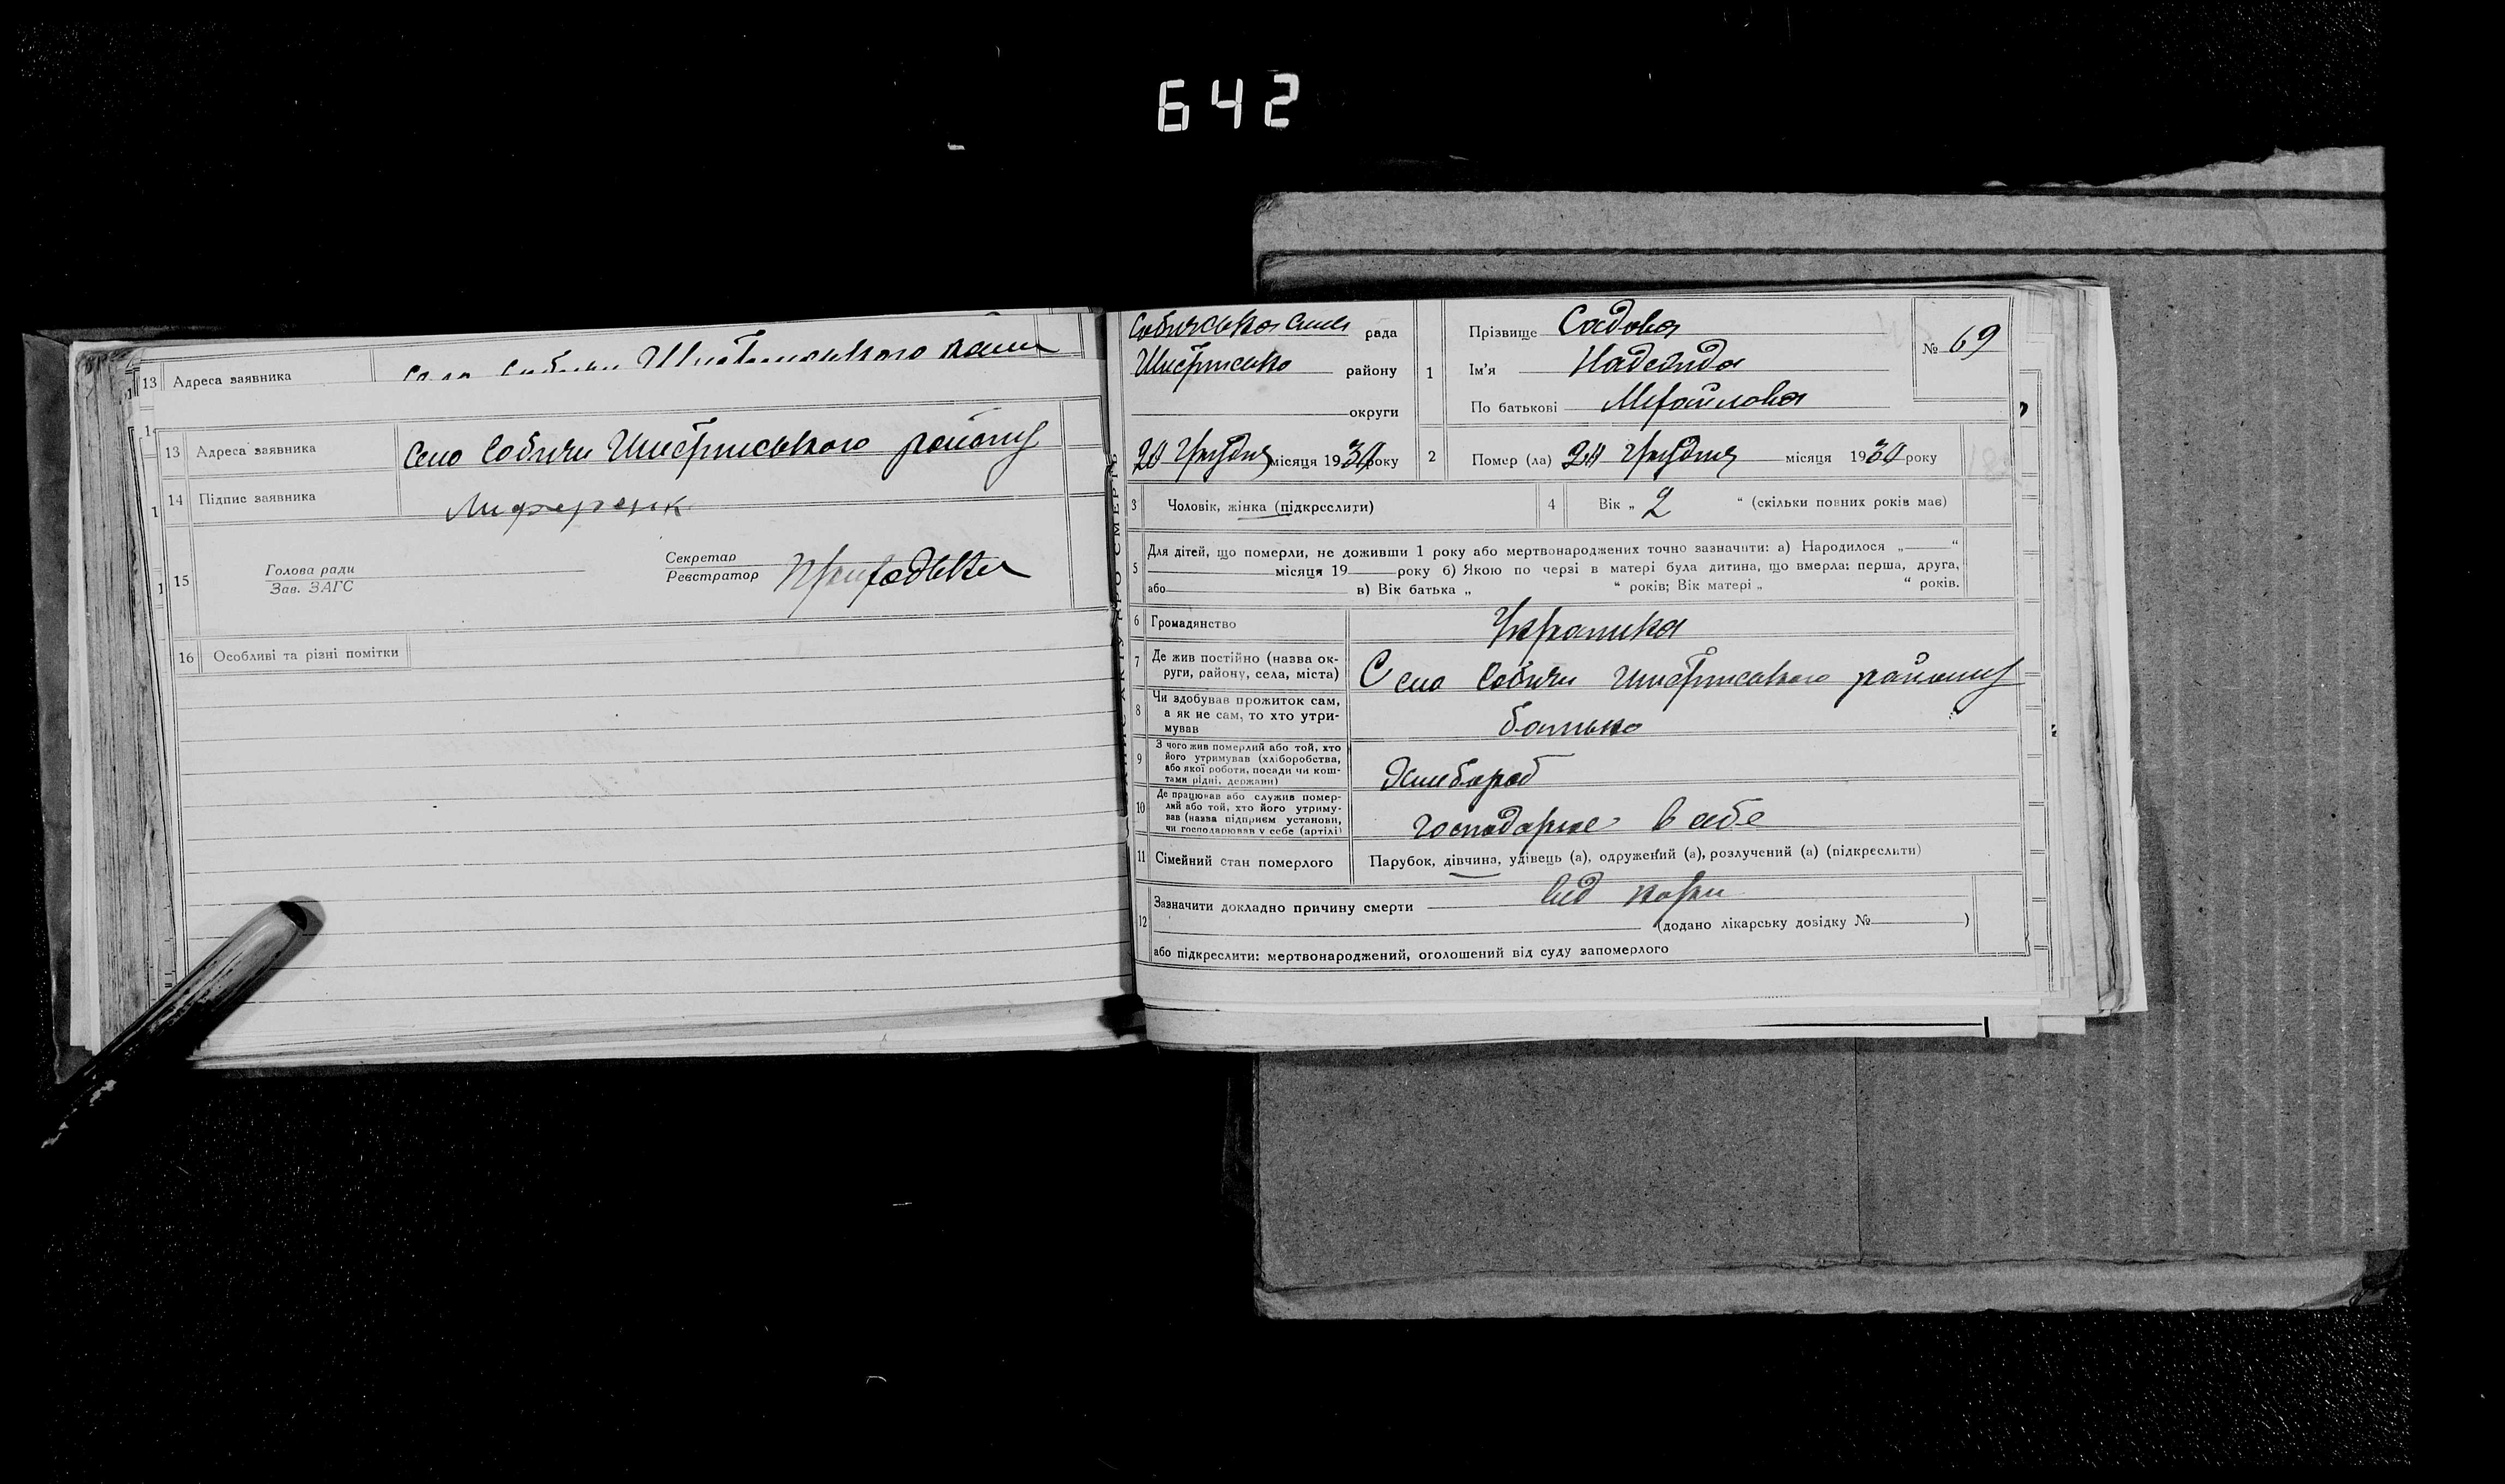 642
13 Адреса заявника
13 Адреса заявника Село Собичи Шостринського району
14 Підпис заявника
15 Голова ради
Зав. ЗАГС
Секретар
Реєстратор
16 Особливі та різні помітки
рада
району
округи
20 Грудня місяця 1930 року
1 Прізвище Садова
Ім'я Надежда
По батькові Михайлова
№ 69
2 Помер (ла) Грудня місяця 1930 року
3 Чоловік, жінка (підкреслити)
4 Вік „ 2 “ (скільки повних років має)
5 Для дітей, що померли, не доживши 1 року або мертвонароджених точно зазначити: а) Народилося „ “
місяця 19 року б) Якою по черзі в матері була дитина, що вмерла: перша, друга,
або в) Вік батька „ “ років; Вік матері „ “ років.
6 Громадянство Українка
7 Де жив постійно (назва ок-
руги, району, села, міста)
Село Собичи району
8 Чи здобував прожиток сам,
а як не сам, то хто утри-
мував
батько
9 З чого жив померлий або той, хто
його утримував (хліборобства,
або якої роботи, посади чи кош-
тами рідні, держави)
Хлибороб
10 Де працював або служив помер-
лий або той, хто його утриму-
вав (назва підприєм установи,
чи господарював у себе (артілі)
господарює в себе
11 Сімейний стан померлого Парубок, дівчина, удівець (а), одружений (а), розлучений (а) (підкреслити)
12 Зазначити докладно причину смерти від кори
(додано лікарську довідку № )
або підкреслити: мертвонароджений, оголошений від суду запомерлого